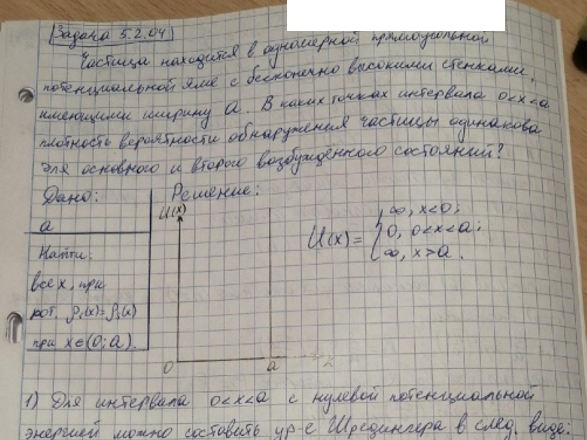 Задача 5.2.04
Частица находится в одномерной прямоугольной
потенциальной яме с бесконечно высокими стенками,
имеющими ширину a. В каких точках интервала 0<x<a
плотность вероятности обнаружения частицы одинакова
для основного и второго возбуждённого состояний?
Дано:
a
Найти:
все x, при
кот. ρ₁(x)=ρ₂(x)
при x∈(0;a).
Решение:
U(x)
0 a x
U(x)= { ∞, x<0;
0, 0<x<a;
∞, x>a.
1) Для интервала 0<x<a с нулевой потенциальной
энергией можно составить ур-е Шредингера в след. виде: